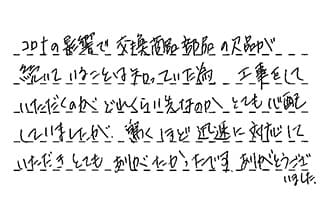 コロナの影響で交換商品部品の欠品が
続いていることは知っていた為 工事をして
いただくのがどれくらい先なのか とても心配
していましたが 驚くほど迅速に対応して
いただき とても ありがたかったです。ありがとうござ
いました。